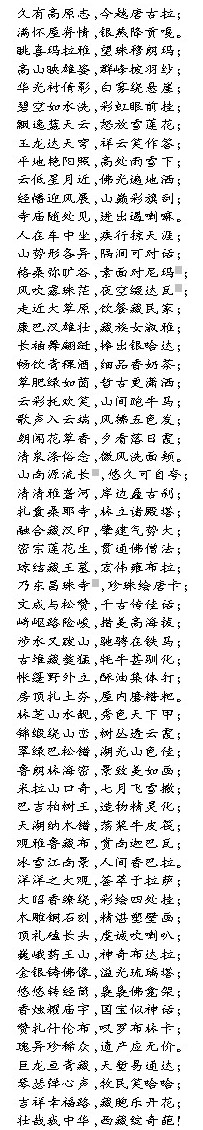 久有高原志,今越唐古拉;
满怀崖荷情,银燕降贡嘎。
眺喜玛拉雅,望珠穆朗玛;
高山映雄姿,群峰披羽纱;
华光衬倩影,白雾绕悬崖;
碧空如水洗,彩虹眼前挂;
飘逸蓝天云,怒放雪莲花;
玉龙达天穹,祥云笑作答;
平地艳阳照,高处雨雪下;
云低星月近,佛光遍地洒;
经幡迎风展,山巅彩旗刮;
寺庙随处见,进出遇喇嘛。
人在车中坐,疾行掠天涯;
山势形各异,隔涧可对话;
格桑弥旷谷,素面对尼玛;
风吹露珠茫,夜空缀达瓦;
走近大草原,饮餐藏民家;
康巴汉雄壮,藏族女淑雅;
长袖舞翩跹,捧出银哈达;
畅饮青稞酒,细品香奶茶;
草肥绿如茵,哲古更潇洒;
云彩托欢笑,山间跑牛马;
歌声入云端,风拂五色发;
朝闻花草香,夕看落日霞;
清泉涤俗念,微风洗面颊。
山南源流长,悠久可自夸;
清清雅砻河,岸边屋古刹;
扎囊桑耶寺,林立诸殿塔;
融合藏汉印,肇建气势大;
密宗莲花生,贯通佛僧法;
琼结藏王墓,宏伟雍布拉;
乃东昌珠寺,珍珠绘唐卡;
文成与松赞,千古传佳话;
崎岖路险峻,措美高海拔;
涉水又跋山,驰骋在铁马;
古堆藏婺猛,牦牛甚驯化;
帐篷野外立,酥油集体打;
房顶扎土夯,屋内磨糌粑。
林芝山水靓,秀色天下甲;
锦缎绕山峦,树丛透云霞;
翠绿巴松错,湖光山色佳;
鲁朗林海密,景致美如画;
米拉山口奇,七月飞雪撒;
巴吉柏树王,造物精灵化;
天湖纳木错,荡桨牛皮筏;
观雅鲁藏布,赏南迦巴瓦;
冰雪江南景,人间香巴拉。
洋洋之大观,荟萃于拉萨;
大昭香缭绕,彩绘四处挂;
木雕铜石刻,精湛塑壁画;
顶礼磕长头,虔诚吹喇叭;
巍峨药王山,神奇布达拉;
金银铸佛像,溢光琉璃塔;
悠悠转经筒,袅袅佛龛架;
香烛耀庙宇,国宝似神话;
赞扎什伦布,叹罗布林卡;
瑰异珍稀众,遗产应无价。
巨龙亘青藏,天堑易通达;
琴瑟弹心声,牧民笑哈哈;
吉祥幸福路,藏胞乐开花;
壮哉我中华,西藏绽奇葩!